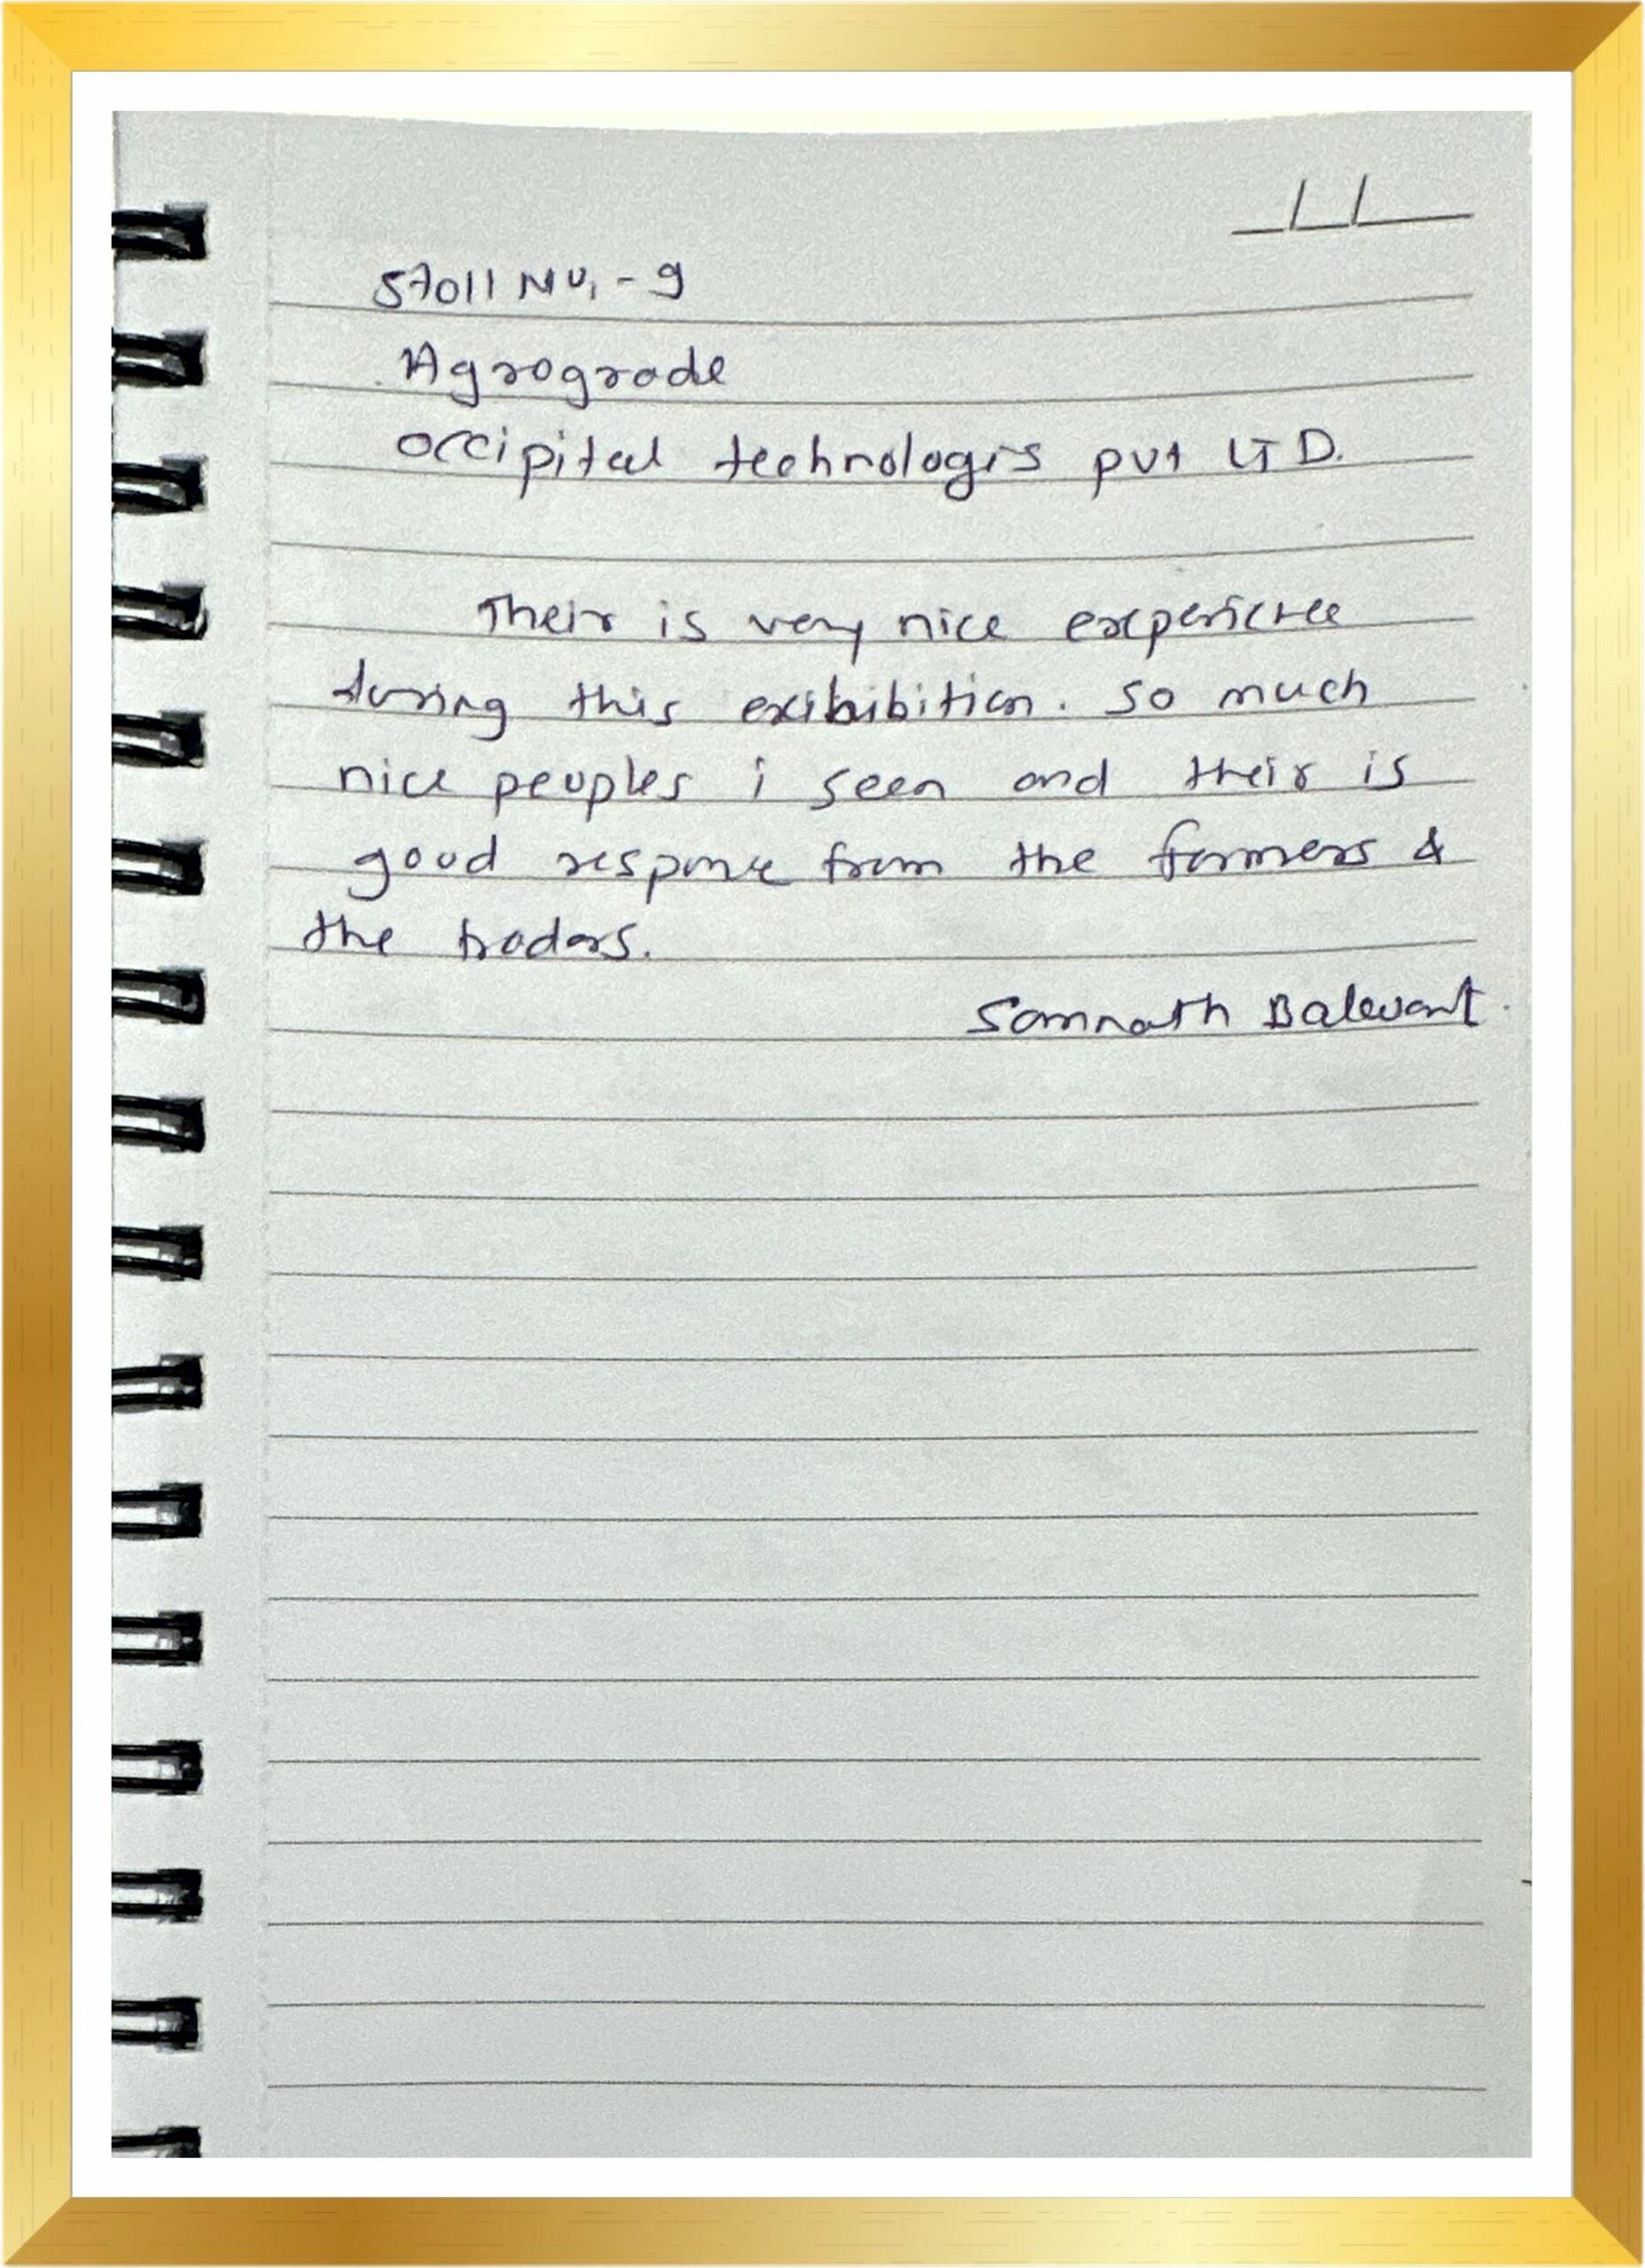 Stall No. - 9
Agrograde
Occipital technologis pvt LTD.
Their is very nice experience
during this exibibition. So much
nice peoples i seen and their is
good response from the farmers &
the tradars.
Somnath Balewant